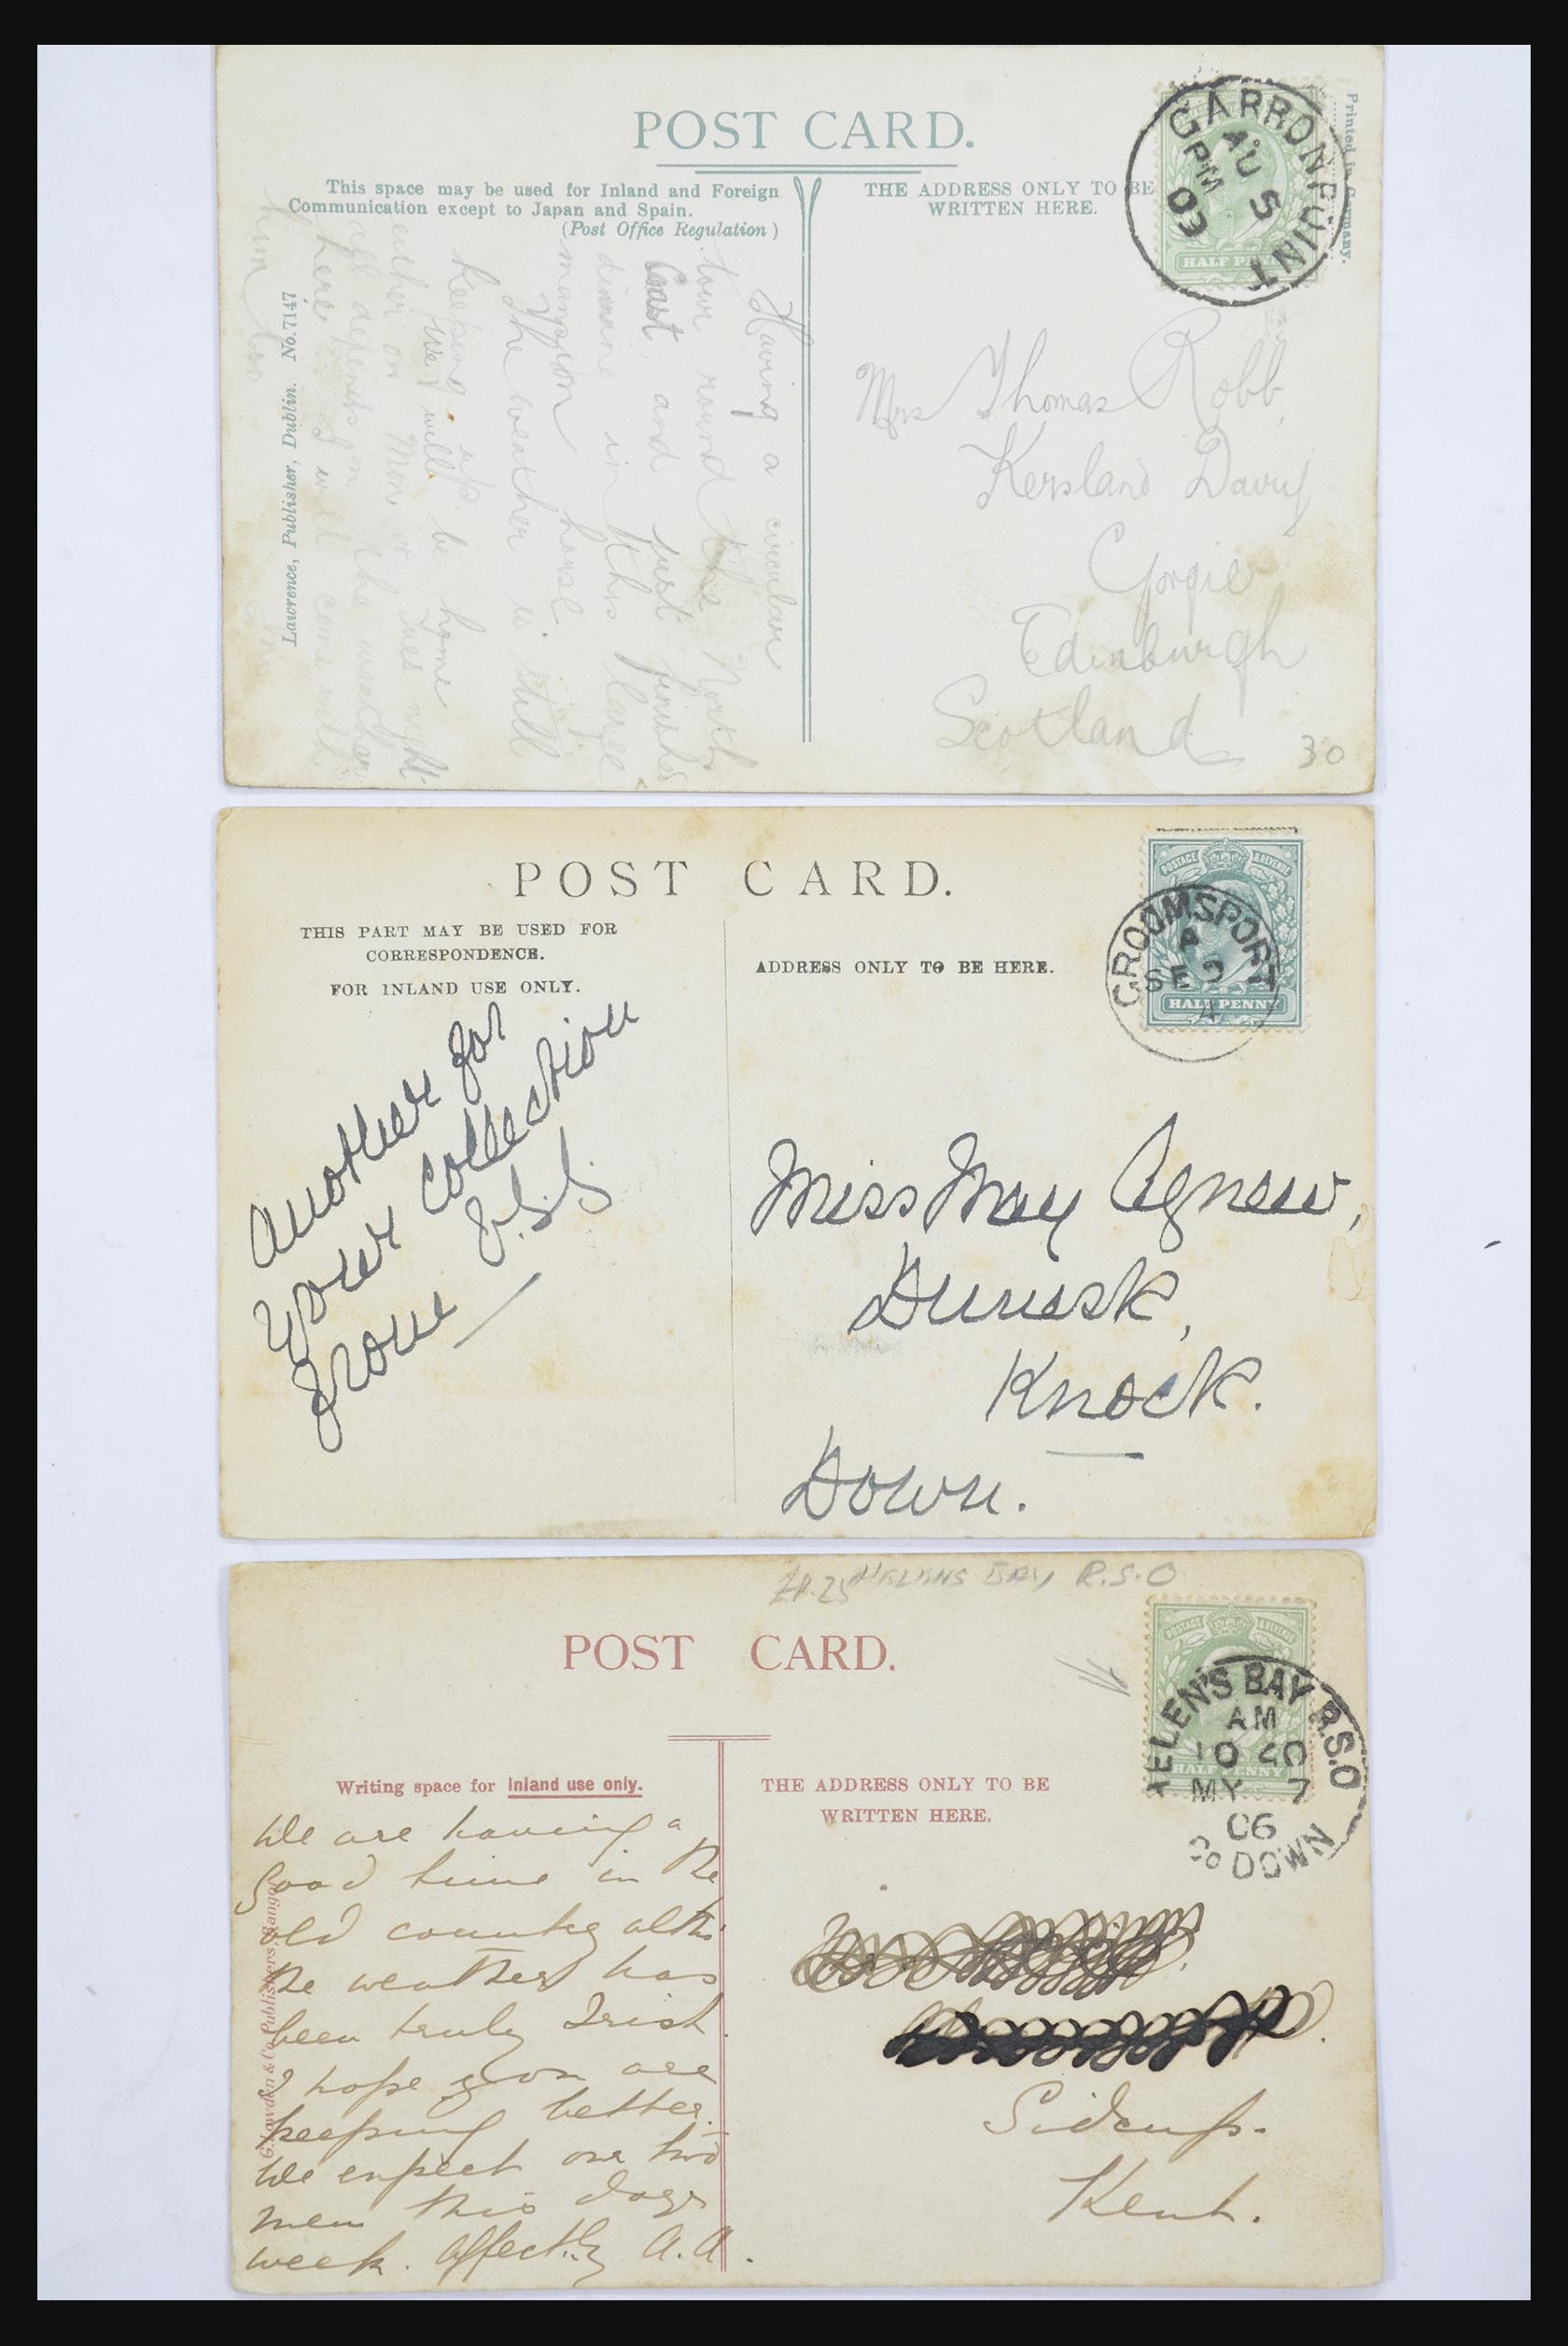 POST CARD.
This space may be used for Inland and Foreign
Communication except to Japan and Spain.
(Post Office Regulation)
THE ADDRESS ONLY TO BE
WRITTEN HERE.
Printed in Germany.
HALF PENNY
GARRONPOINT
PM
AU 5
03
Lawrence, Publisher, Dublin. No. 7147
Having a circular
tour round the North
Coast, and just finished
in this place
The weather is still
Keeping up.
We will be home
either on Mon or Tues night
all depends on the weather
here. I will come with
him
Mrs Thomas Robb,
Kersland
Gorgie
Edinburgh
Scotland
30
POST CARD.
THIS PART MAY BE USED FOR
CORRESPONDENCE.
FOR INLAND USE ONLY.
ADDRESS ONLY TO BE HERE.
POSTAGE & REVENUE
HALF PENNY
GROOMSPORT
A
SE 9
Another for
your collection
from
Miss May Agnew,
Knock.
Down.
HELENS BAY R.S.O
POST CARD.
POSTAGE & REVENUE
HALF PENNY
HELEN'S BAY R.S.O
AM
10 40
MY 7
06
CO DOWN
Writing space for Inland use only.
THE ADDRESS ONLY TO BE
WRITTEN HERE.
We are having a
good time in the
old country altho'
the weather has
been truly Irish.
I hope you are
keeping better.
We expect our two
men this
week. Affectly A.A.
Sidcup.
Kent.